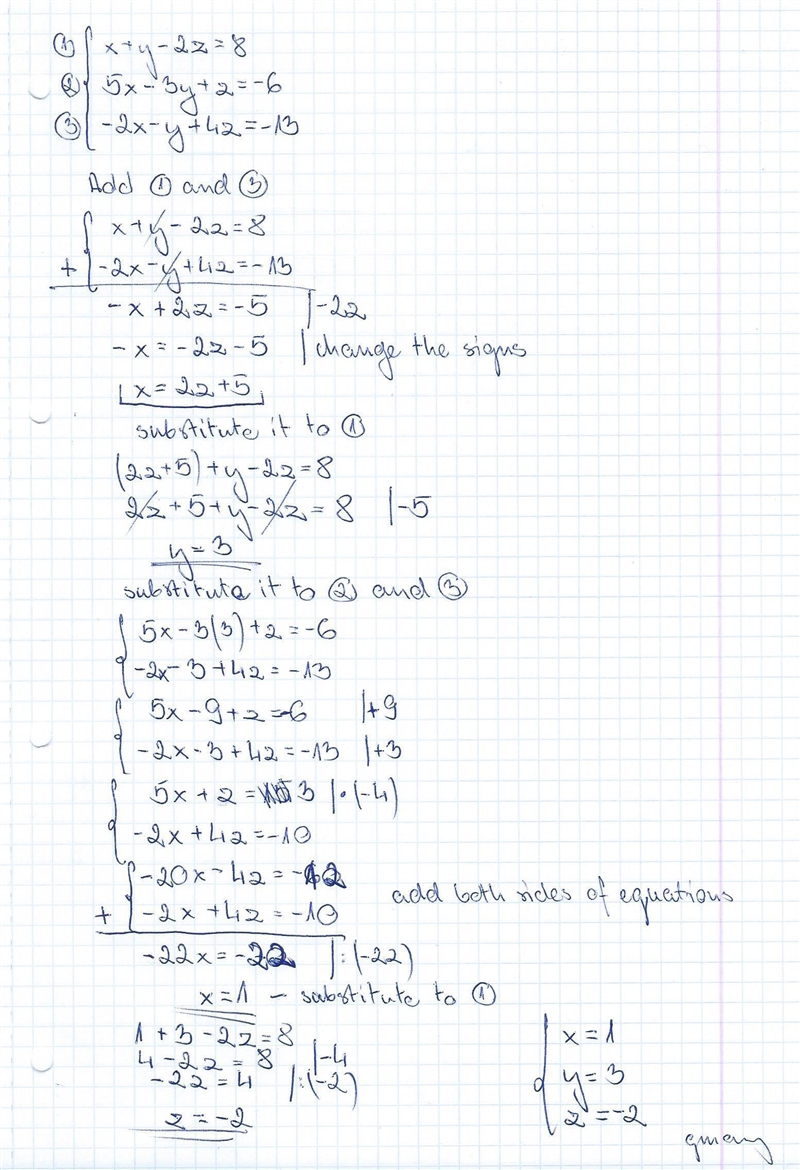 ① x+y-2z=8
② 5x-3y+z=-6
③ -2x-y+4z=-13
Add ① and ③
x+y-2z=8
+ -2x-y+4z=-13
-x+2z=-5 |-2z
-x=-2z-5 | change the signs
x=2z+5
substitute it to ①
(2z+5)+y-2z=8
2z+5+y-2z=8 |-5
y=3
substitute it to ② and ③
5x-3(3)+z=-6
-2x-3+4z=-13
5x-9+z=-6 |+9
-2x-3+4z=-13 |+3
5x+z=3 |·(-4)
-2x+4z=-10
-20x-4z=-12
+ -2x+4z=-10 add both sides of equations
-22x=-22 |:(-22)
x=1 - substitute to ①
1+3-2z=8
4-2z=8 |-4
-2z=4 |:(-2)
z=-2
x=1
y=3
z=-2